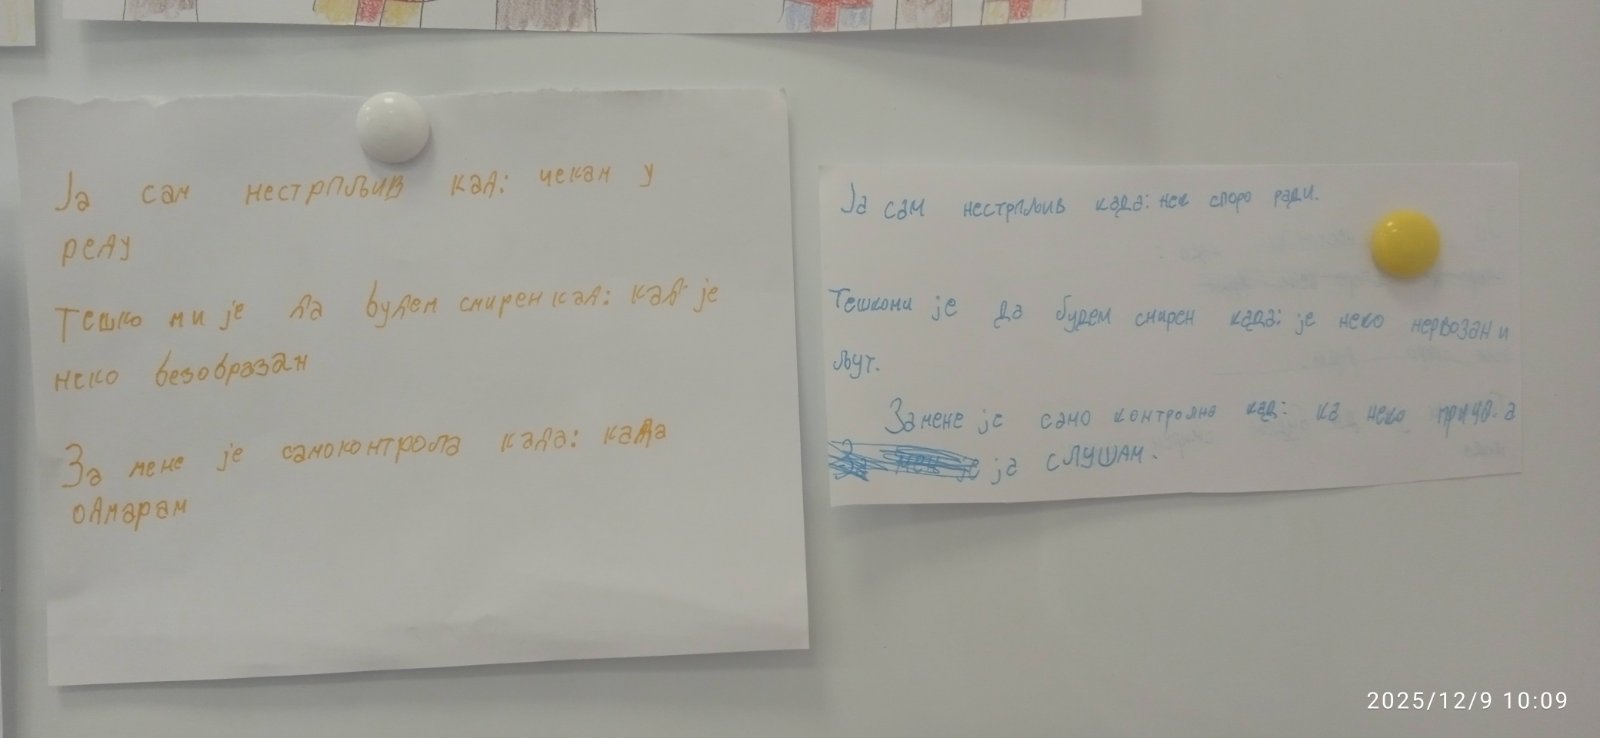 Ја сам нестрпљив кад: чекам у
реду
Тешко ми је да будем смирен кад: кад је
неко безобразан
За мене је самоконтрола када: када
одмарам
Ја сам нестрпљив када: нек споро ради.
Тешкоми је да будем смирен када: је неко нервозан и
љут.
За мене је само контролна кад: ка неко прича а
ја слушам.
2025/12/9 10:09